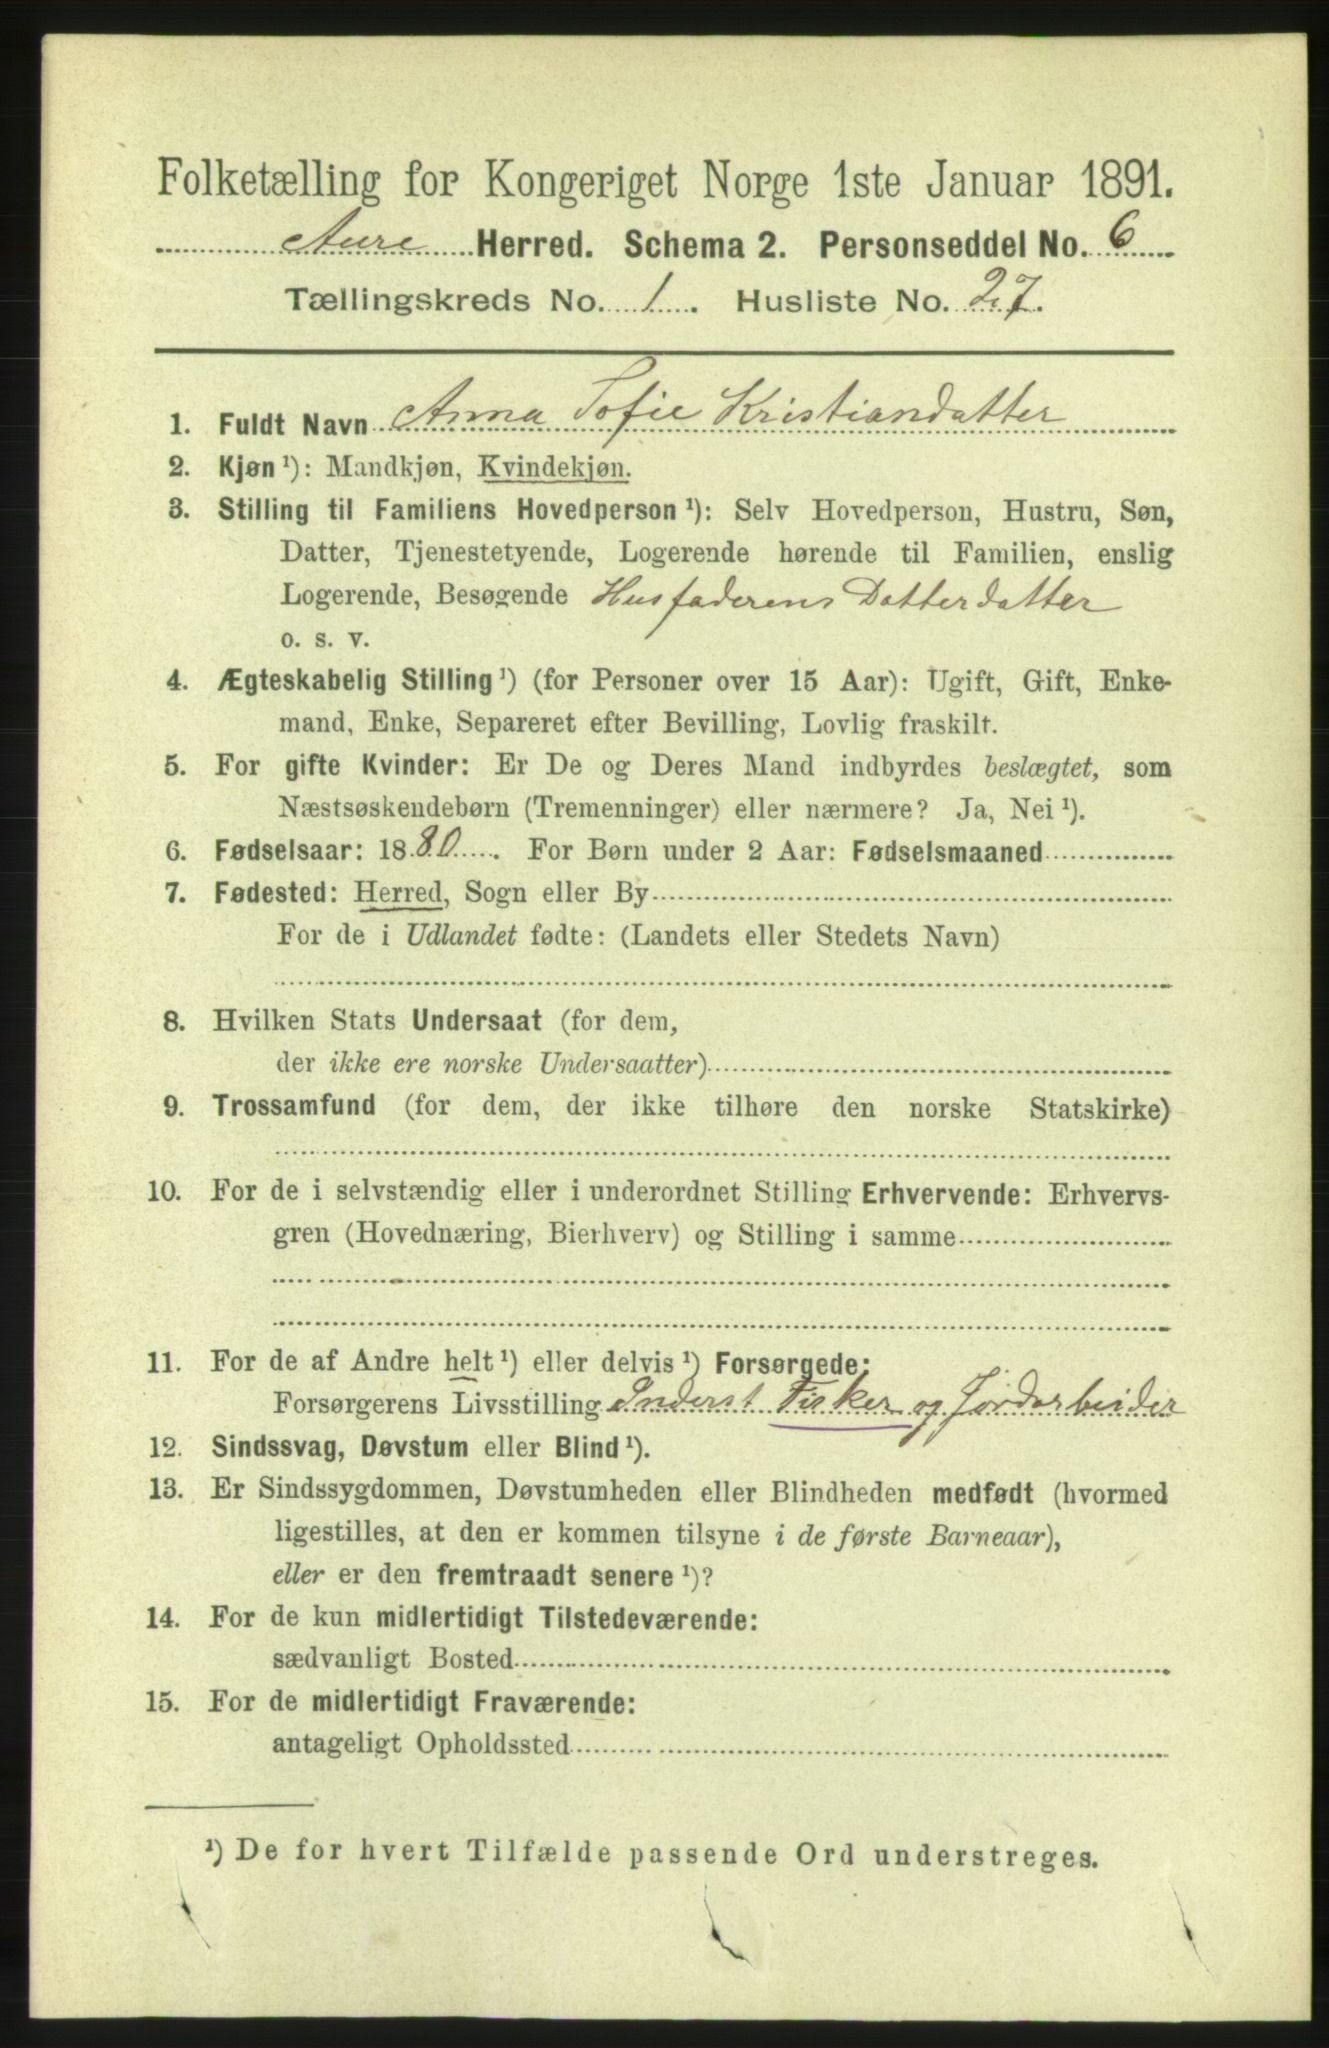 Folketælling for Kongeriget Norge 1ste Januar 1891.
Aure Herred. Schema 2. Personseddel No. 6
Tællingskreds No. 1. Husliste No. 27.
1. Fuldt Navn Anna Sofie Kristiandatter
2. Kjøn ¹): Mandkjøn, Kvindekjøn.
3. Stilling til Familiens Hovedperson ¹): Selv Hovedperson, Hustru, Søn,
Datter, Tjenestetyende, Logerende hørende til Familien, enslig
Logerende, Besøgende Husfaderens Datterdatter
o. s. v.
4. Ægteskabelig Stilling ¹) (for Personer over 15 Aar): Ugift, Gift, Enke-
mand, Enke, Separeret efter Bevilling, Lovlig fraskilt.
5. For gifte Kvinder: Er De og Deres Mand indbyrdes beslægtet, som
Næstsøskendebørn (Tremenninger) eller nærmere? Ja, Nei ¹).
6. Fødselsaar: 1880. For Børn under 2 Aar: Fødselsmaaned
7. Fødested: Herred, Sogn eller By
For de i Udlandet fødte: (Landets eller Stedets Navn)
8. Hvilken Stats Undersaat (for dem,
der ikke ere norske Undersaatter)
9. Trossamfund (for dem, der ikke tilhøre den norske Statskirke)
10. For de i selvstændig eller i underordnet Stilling Erhvervende: Erhvervs-
gren (Hovednæring, Bierhverv) og Stilling i samme
11. For de af Andre helt ¹) eller delvis ¹) Forsørgede:
Forsørgerens Livsstilling Inderst Fisker og Jordarbeider
12. Sindssvag, Døvstum eller Blind ¹).
13. Er Sindssygdommen, Døvstumheden eller Blindheden medfødt (hvormed
ligestilles, at den er kommen tilsyne i de første Barneaar),
eller er den fremtraadt senere ¹)?
14. For de kun midlertidigt Tilstedeværende:
sædvanligt Bosted
15. For de midlertidigt Fraværende:
antageligt Opholdssted
¹) De for hvert Tilfælde passende Ord understreges.